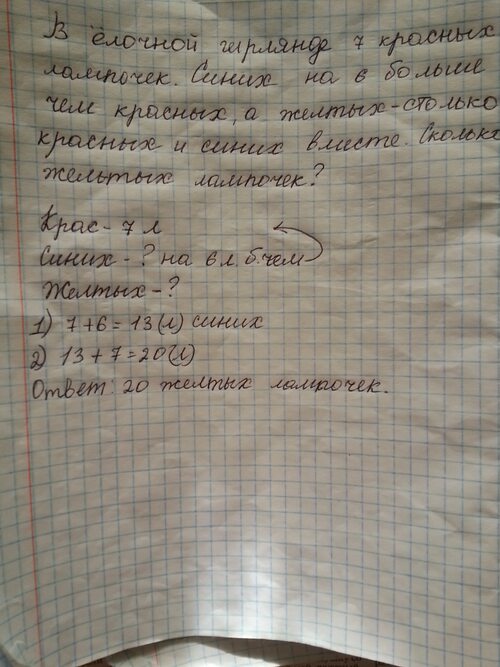 В ёлочной гирлянде 7 красных
лампочек. Синих на 6 больше
чем красных, а желтых - столько
красных и синих вместе. Сколько
желтых лампочек?
Крас - 7 л
Синих - ? на 6 л. б. чем
Желтых - ?
1) 7 + 6 = 13 (л) синих
2) 13 + 7 = 20 (л)
Ответ: 20 желтых лампочек.